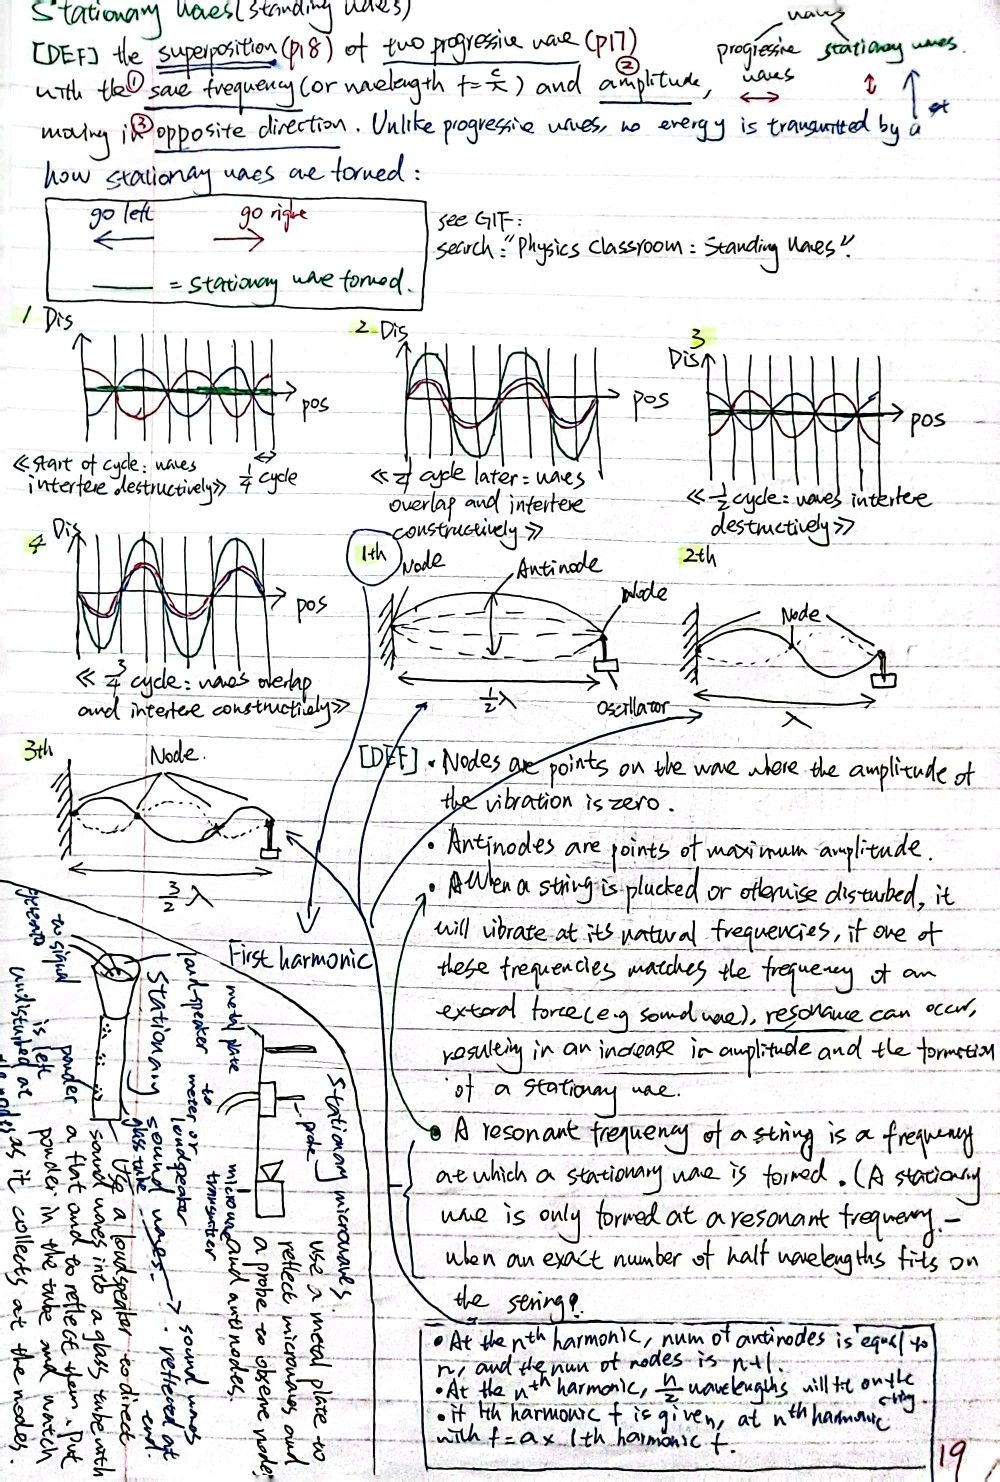 Stationary Waves (Standing Waves)
[DEF] the superposition (P18) of two progressive wave (P17)
with the ① same frequency (or wavelength f = c/λ) and ② amplitude,
moving in ③ opposite direction. Unlike progressive waves, no energy is transmitted by a st
waves
progressive stationary waves.
waves
how stationary waves are formed:
go left go right
= stationary wave formed.
see GIF:
search: "Physics Classroom: Standing Waves".
1 Dis
pos
<<start of cycle: waves
interfere destructively>> 1/4 cycle
2 Dis
pos
<<1/4 cycle later: waves
overlap and interfere
constructively>>
3
Dis
pos
<<1/2 cycle: waves interfere
destructively>>
4 Dis
pos
<<3/4 cycle: waves overlap
and interfere constructively>>
1th Node Antinode Node
1/2 λ Oscillator
2th
Node
λ
3th Node.
3/2 λ
[DEF] • Nodes are points on the wave where the amplitude of
the vibration is zero.
• Antinodes are points of maximum amplitude.
• When a string is plucked or otherwise disturbed, it
will vibrate at its natural frequencies, if one of
these frequencies matches the frequency of an
external force (e.g sound wave), resonance can occur,
resulting in an increase in amplitude and the formation
of a stationary wave.
• A resonant frequency of a string is a frequency
at which a stationary wave is formed. (A stationary
wave is only formed at a resonant frequency. –
when an exact number of half wavelengths fits on
the string).
• At the nth harmonic, num of antinodes is equal to
n, and the num of nodes is n+1.
• At the nth harmonic, n/2 wavelengths will fit on the
string.
• if 1th harmonic f is given, at nth harmonic
with f = a x 1th harmonic f.
First harmonic
Stationary microwaves.
probe
metal plate
to
meter or
loudspeaker
microwave
transmitter
use a metal plate to
reflect microwaves and
a probe to observe nodes
and antinodes.
Stationary sound waves.
loud-speaker
to signal
generator
glass tube
sound waves
reflected at
end.
Use a loudspeaker to direct
sound waves into a glass tube with
a flat end to reflect them. Put
powder in the tube and watch
as it collects at the nodes.
powder
is left
undisturbed at
19